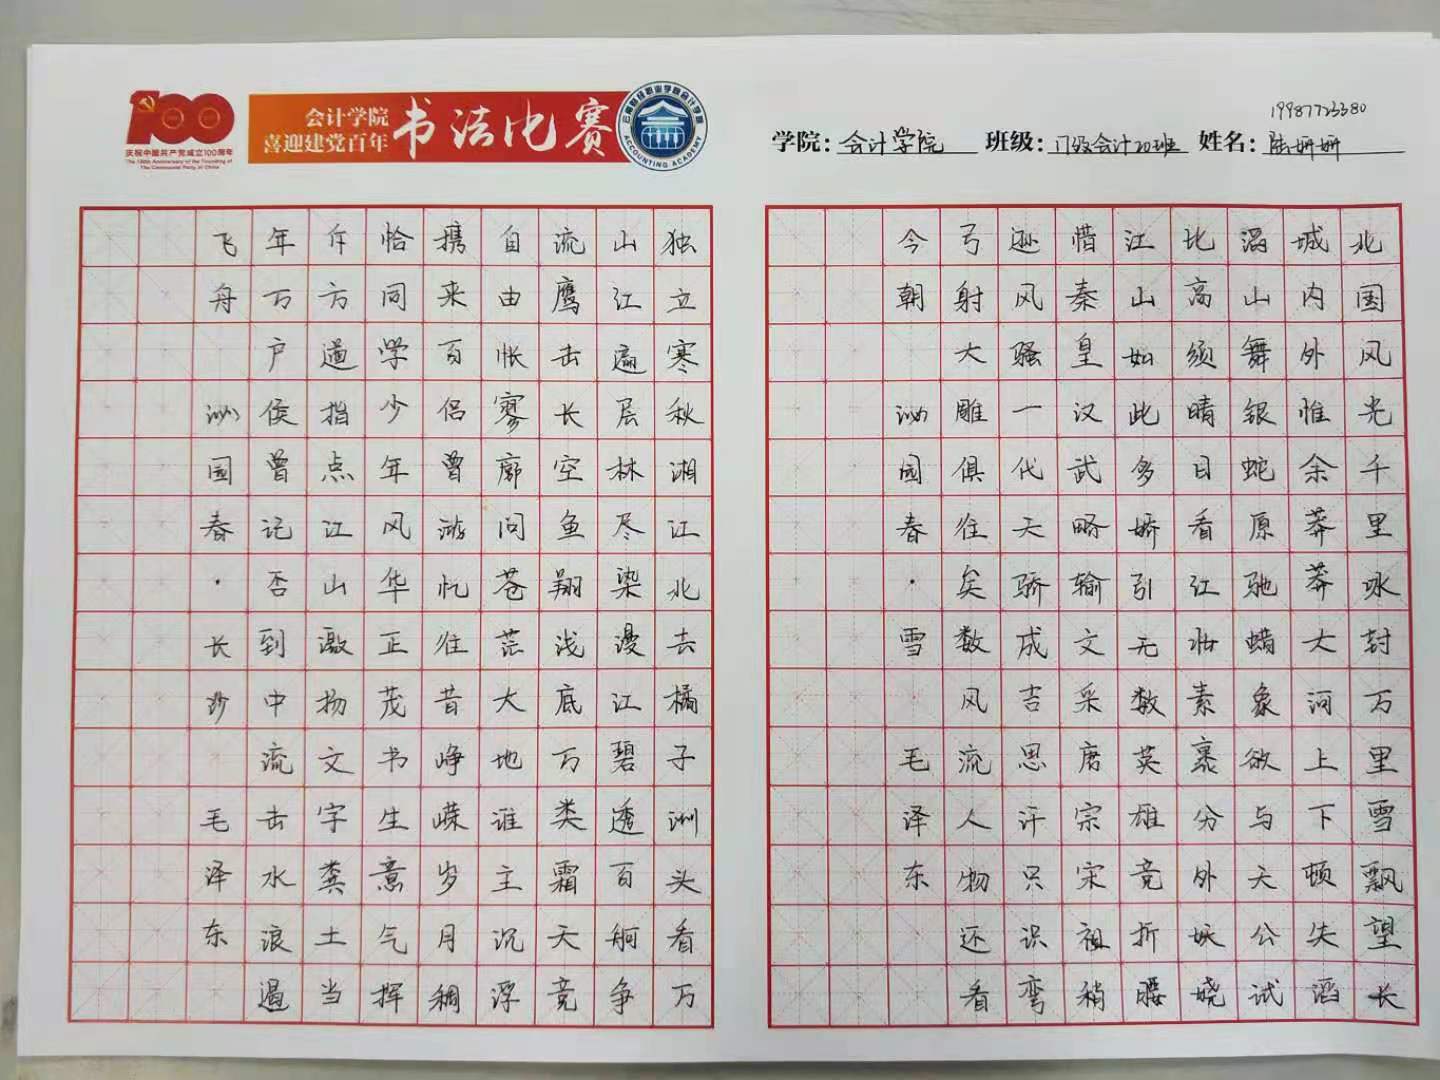 庆祝中国共产党成立100周年
The 100th Anniversary of the Founding of
The Communist Party of China
会计学院
喜迎建党百年
书法比赛
云南财经职业学院会计学院
ACCOUNTING ACADEMY
19987723380
学院：会计学院 班级：会计20班 姓名：陆妍妍
北国风光千里冰封万里雪飘望长
城内外惟余莽莽大河上下顿失滔
滔山舞银蛇原驰蜡象欲与天公试
比高须晴日看红妆素裹分外妖娆
江山如此多娇引无数英雄竞折腰
惜秦皇汉武略输文采唐宗宋祖稍
逊风骚一代天骄成吉思汗只识弯
弓射大雕俱往矣数风流人物还看
今朝 沁园春·雪 毛泽东
独立寒秋湘江北去橘子洲头看万
山江遍层林尽染漫江碧透百舸争
流鹰击长空鱼翔浅底万类霜天竞
自由怅寥廓问苍茫大地谁主沉浮
携来百侣曾游忆往昔峥嵘岁月稠
恰同学少年风华正茂书生意气挥
斥方遒指点江山激扬文字粪土当
年万户侯曾记否到中流击水浪遏
飞舟 沁园春·长沙 毛泽东